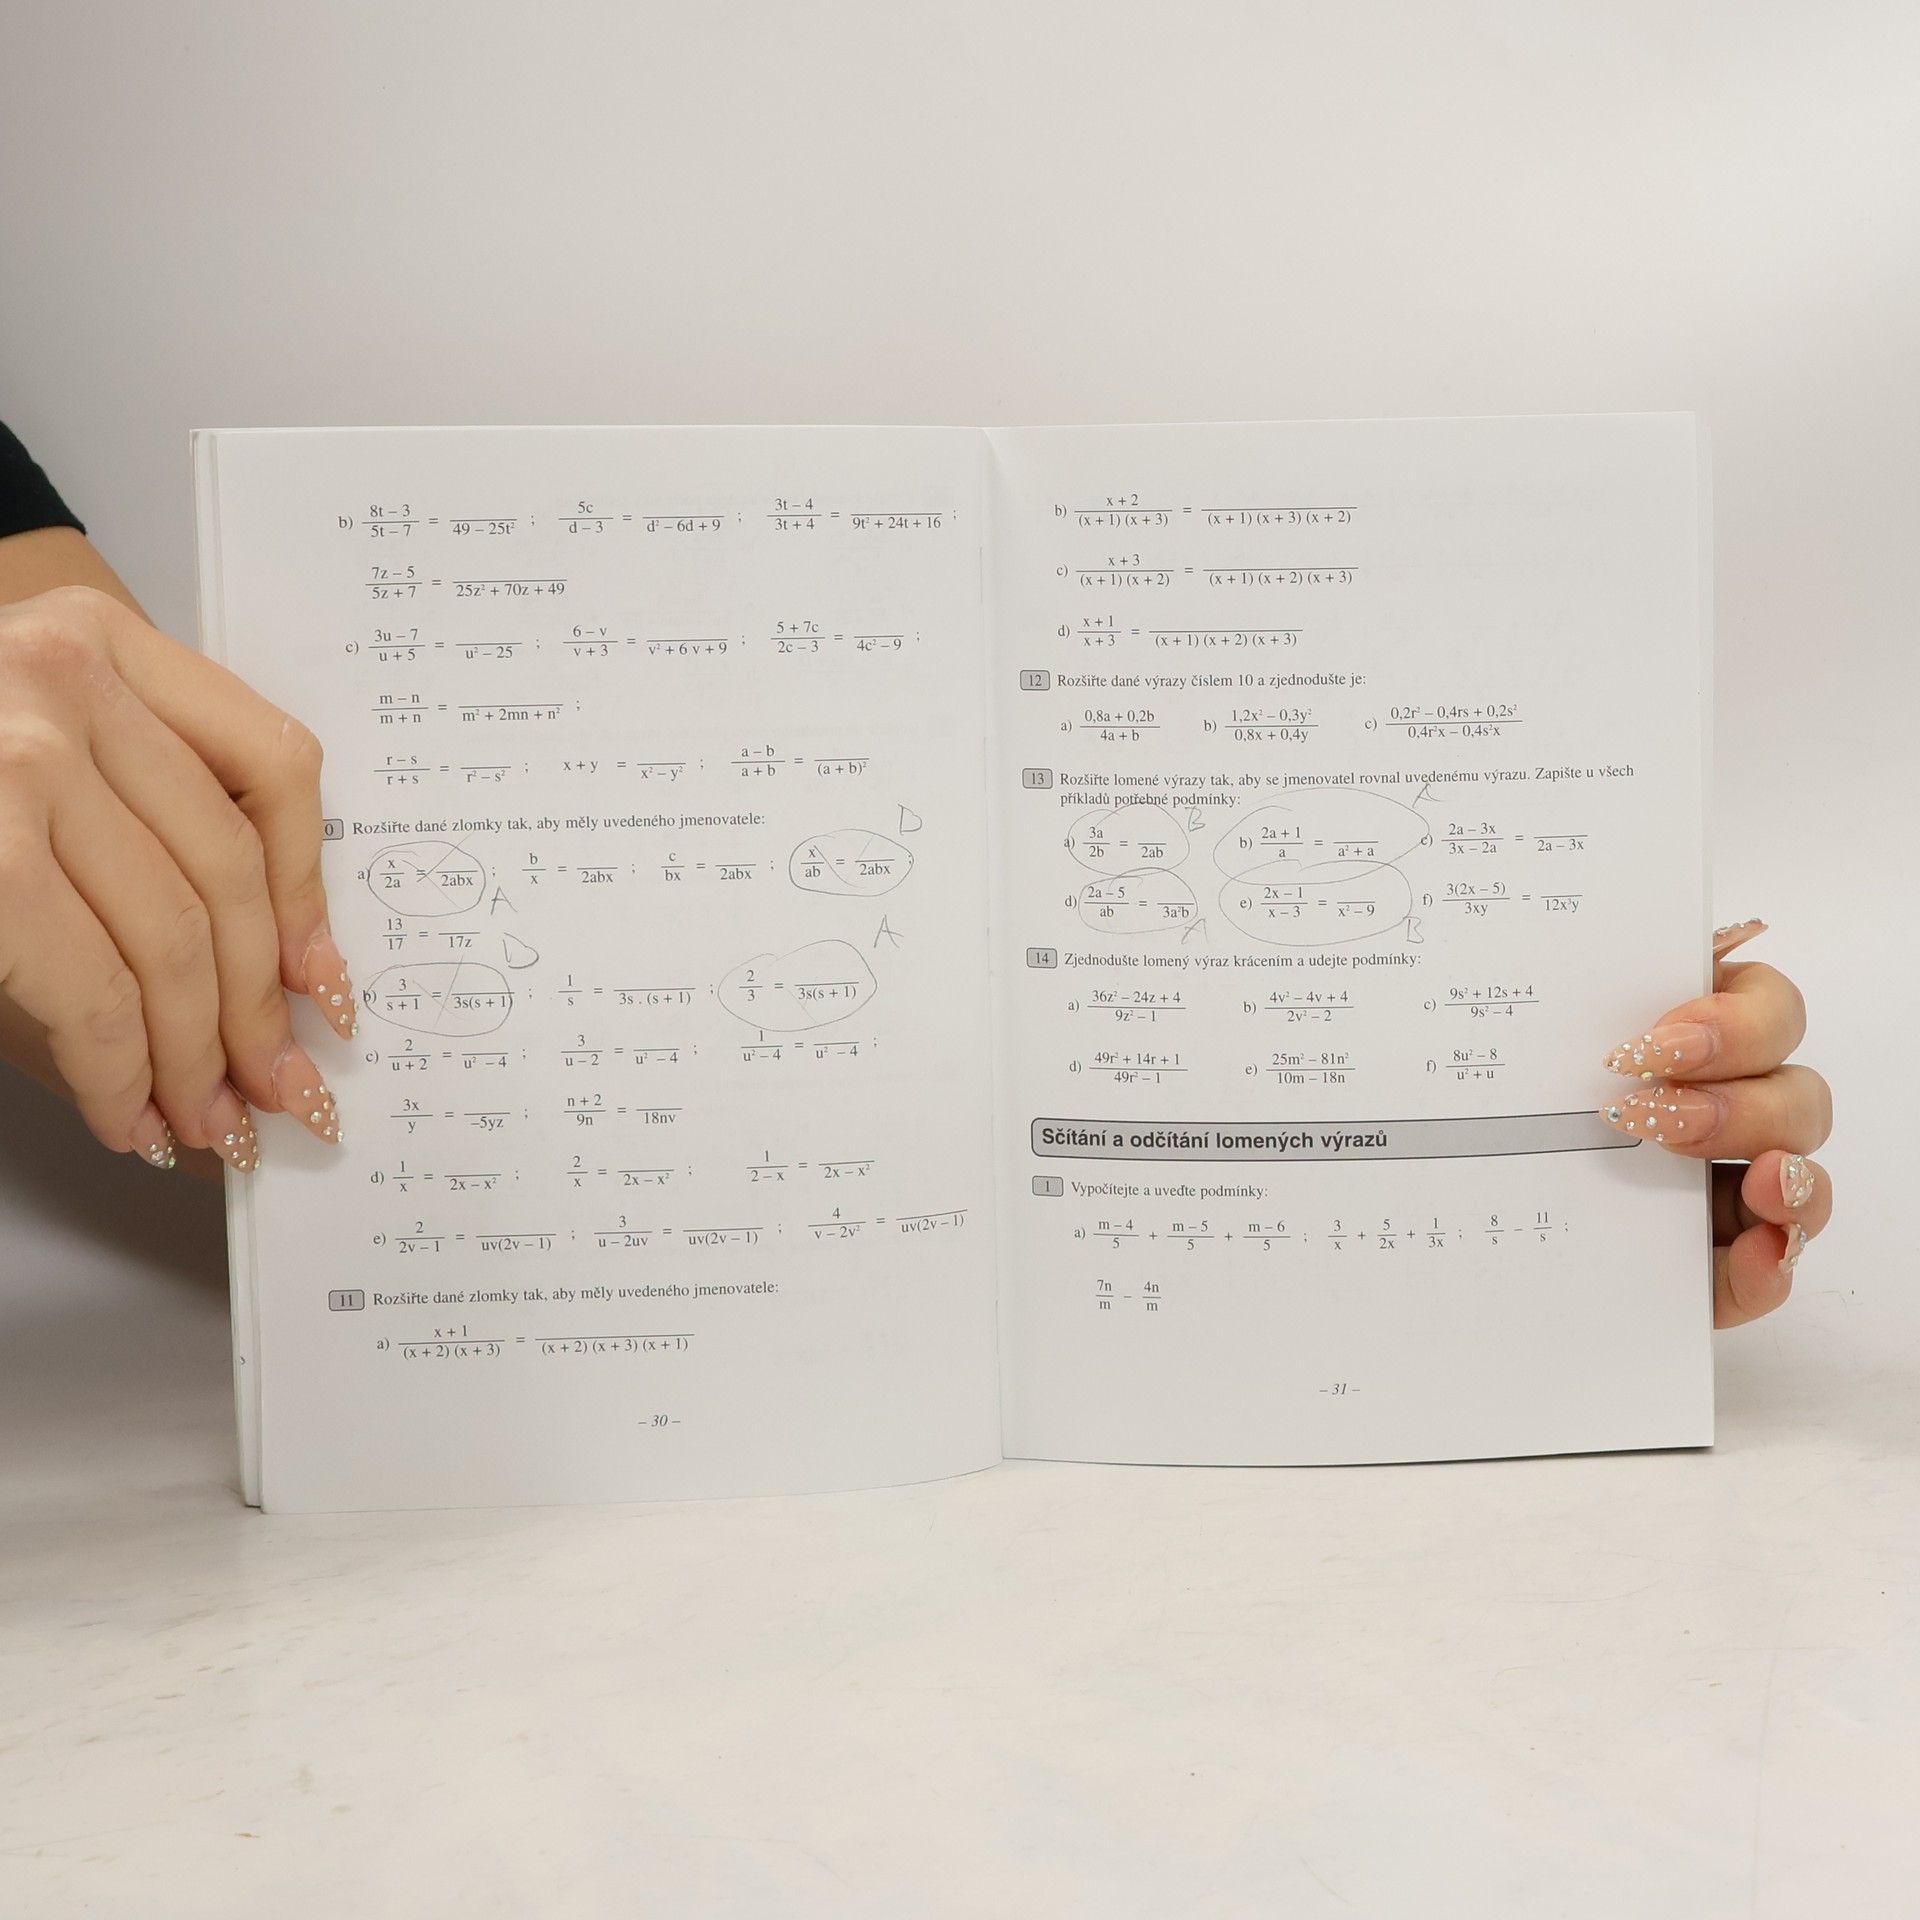 b) (8t – 3)/(5t – 7) = /(49 – 25t²) ; 5c/(d – 3) = /(d² – 6d + 9) ; (3t – 4)/(3t + 4) = /(9t² + 24t + 16) ;
(7z – 5)/(5z + 7) = /(25z² + 70z + 49)
c) (3u – 7)/(u + 5) = /(u² – 25) ; (6 – v)/(v + 3) = /(v² + 6 v + 9) ; (5 + 7c)/(2c – 3) = /(4c² – 9) ;
(m – n)/(m + n) = /(m² + 2mn + n²) ;
(r – s)/(r + s) = /(r² – s²) ; x + y = /(x² – y²) ; (a – b)/(a + b) = /(a + b)²
0 Rozšiřte dané zlomky tak, aby měly uvedeného jmenovatele:
a) x/2a = /2abx ; b/x = /2abx ; c/bx = /2abx ; x/ab = /2abx ;
13/17 = /17z
b) 3/(s + 1) = /3s(s + 1) ; 1/s = /3s . (s + 1) ; 2/3 = /3s(s + 1)
c) 2/(u + 2) = /(u² – 4) ; 3/(u – 2) = /(u² – 4) ; 1/(u² – 4) = /(u² – 4) ;
3x/y = /–5yz ; (n + 2)/9n = /18nv
d) 1/x = /(2x – x²) ; 2/x = /(2x – x²) ; 1/(2 – x) = /(2x – x²)
e) 2/(2v – 1) = /uv(2v – 1) ; 3/(u – 2uv) = /uv(2v – 1) ; 4/(v – 2v²) = /uv(2v – 1)
11 Rozšiřte dané zlomky tak, aby měly uvedeného jmenovatele:
a) (x + 1)/(x + 2) (x + 3) = /(x + 2) (x + 3) (x + 1)
– 30 –
b) (x + 2)/(x + 1) (x + 3) = /(x + 1) (x + 3) (x + 2)
c) (x + 3)/(x + 1) (x + 2) = /(x + 1) (x + 2) (x + 3)
d) (x + 1)/(x + 3) = /(x + 1) (x + 2) (x + 3)
12 Rozšiřte dané výrazy číslem 10 a zjednodušte je:
a) (0,8a + 0,2b)/(4a + b) b) (1,2x² – 0,3y²)/(0,8x + 0,4y) c) (0,2r² – 0,4rs + 0,2s²)/(0,4r²x – 0,4s²x)
13 Rozšiřte lomené výrazy tak, aby se jmenovatel rovnal uvedenému výrazu. Zapište u všech
příkladů potřebné podmínky:
a) 3a/2b = /2ab B b) (2a + 1)/a = /(a² + a) A c) (2a – 3x)/(3x – 2a) = /(2a – 3x)
d) (2a – 5)/ab = /3a²b A e) (2x – 1)/(x – 3) = /(x² – 9) B f) 3(2x – 5)/3xy = /12x³y
14 Zjednodušte lomený výraz krácením a udejte podmínky:
a) (36z² – 24z + 4)/(9z² – 1) b) (4v² – 4v + 4)/(2v² – 2) c) (9s² + 12s + 4)/(9s² – 4)
d) (49r² + 14r + 1)/(49r² – 1) e) (25m² – 81n²)/(10m – 18n) f) (8u² – 8)/(u² + u)
Sčítání a odčítání lomených výrazů
1 Vypočítejte a uveďte podmínky:
a) (m – 4)/5 + (m – 5)/5 + (m – 6)/5 ; 3/x + 5/2x + 1/3x ; 8/s – 11/s ;
7n/m – 4n/m
– 31 –